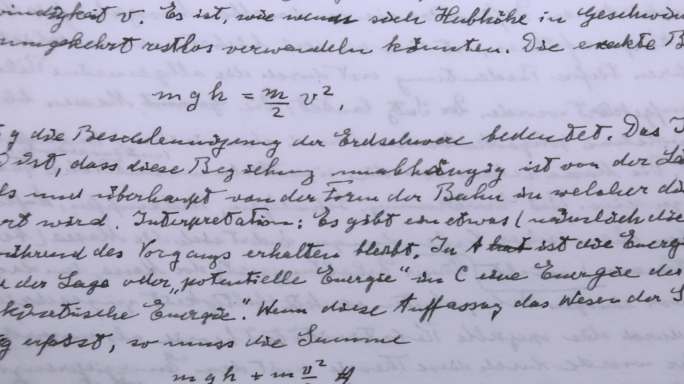 indigkeit v. Es ist, wie wenn sich Hubhöhe in Geschwin
umgekehrt restlos verwandeln könnten. Die exakte B
m g h = m/2 v²,
g die Beschleunigung der Erdschwere bedeutet. Das I
ist, dass diese Beziehung unabhängig ist von der Lä
ls und überhaupt von der Form der Bahn in welcher di
ert wird. Interpretation: Es gibt ein etwas (nämlich die
während des Vorgangs erhalten bleibt. In A ist die Energi
der Lage oder „potentielle Energie" in C eine Energie der
kinetische Energie". Wenn diese Auffassung das Wesen der S
ig erfasst, so muss die Summe
m g h + m v²/2